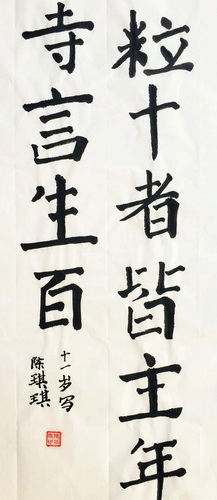 粒十者皆主年
寺言生百
十一岁写
陈琪琪